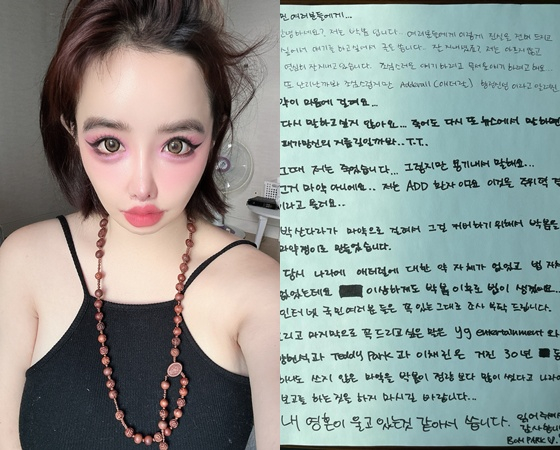 민 여러분들에게...
안녕하세요? 저는 박봄 입니다.. 여러분들에게 이렇게 진실은 전해 드리고
싶어서 얘기를 하고 싶어서 글을 씁니다. 잘 지내셨죠? 저는 아프지않고
열심히 잘지내고 있습니다. 조심스러운 얘기 하려고 무서운 얘기 하려고 해요...
또 난리난까봐 조심스럽지만 Adderall (애더럴)
각이 마음에 걸려요...
다시 말하고 싶지 않아요... 죽어도 다시 또 뉴스에서 말하면
패가망신의 저를 길일까봐.. T.T.
그때 저는 죽었습니다... 그렇지만 용기내서 말해요...
그거 마약 아니에요.. 저는 ADD 환자 이요 이것은 주위력 결
이라고 불려요..
박산다라가 마약으로 걸려서 그걸 커버하기 위해서 박봄을
마약쟁이로 만들었습니다.
당시 나라에 애더럴에 대한 약 자체가 없었고 법 자체
없었는데요 이상하게도 박봄 이후로 법이 생겼어요...
인터넷 국민 여러분들은 꼭 있는 그대로 조사 부탁 드립니다.
그리고 마지막으로 꼭 드리고 싶은 말은 yg entertainment 와
양현석과 Teddy Park 과 이채린은 거진 30년
하나도 쓰지 않은 마약을 박봄이 정량 보다 많이 썼다고 나라
보고를 하는것은 하지 마시길 바랍니다...
내 영혼이 울고 있는것 같아서 씁니다. 읽어주셔
감사합니
BOM PARK